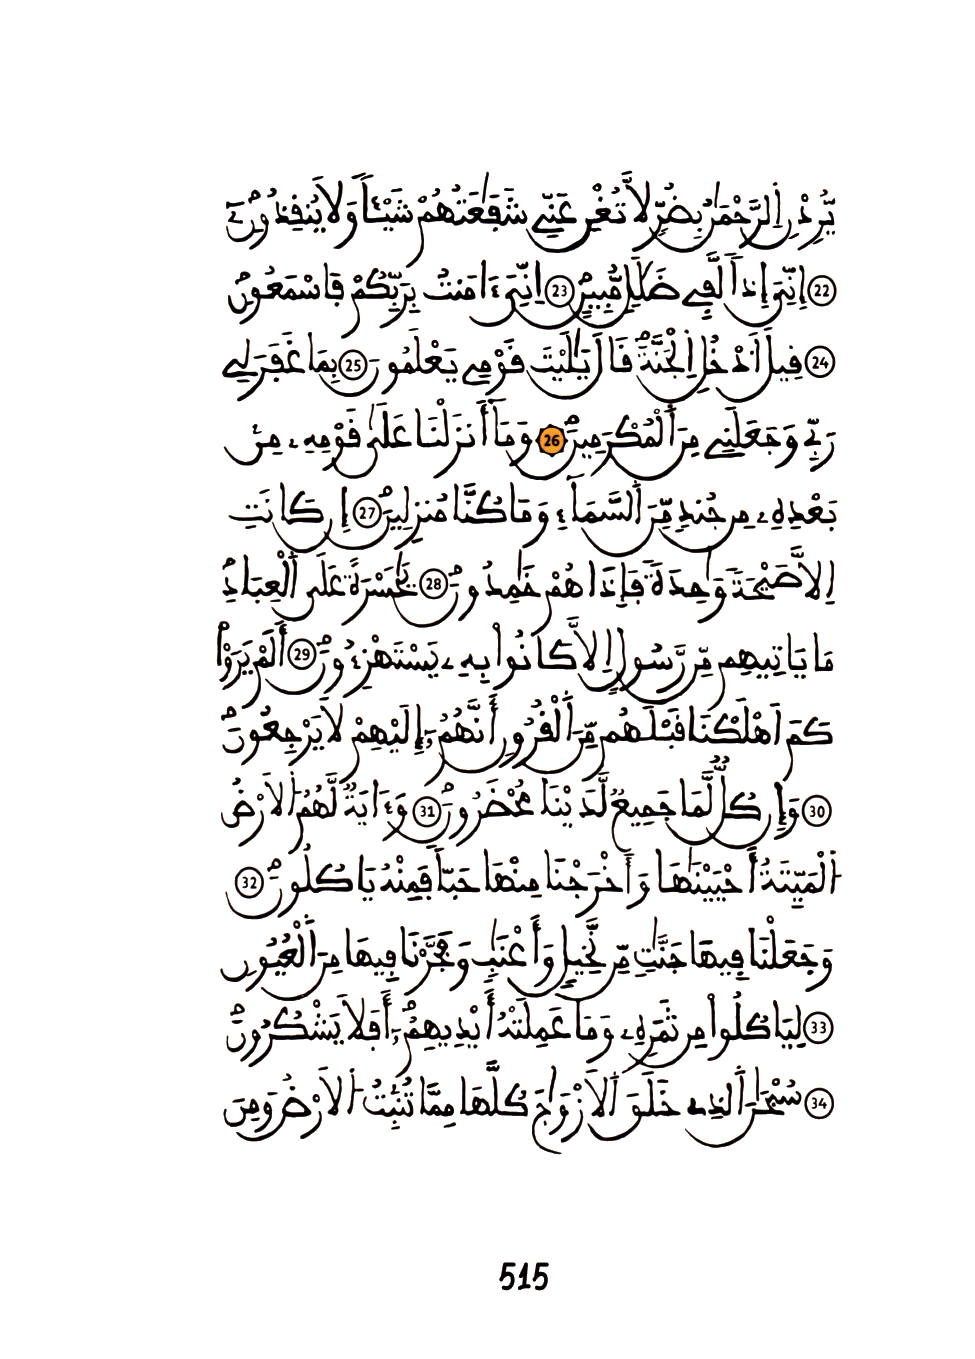 يُّرِدْنِ اِ۬لرَّحْمَٰنُ بِضُرّٖ لَّا تُغْنِ عَنِّے شَفَٰعَتُهُمْ شَيْـٔاٗ وَلَا يُنقِذُونِۦٓ
22 إِنِّيَ إِذاٗ لَّفِے ضَلَٰلٖ مُّبِينٍ 23 اِنِّيَ ءَامَنتُ بِرَبِّكُمْ فَاسْمَعُونِۖ
24 قِيلَ اَ۟دْخُلِ اِ۬لْجَنَّةَۖ قَالَ يَٰلَيْتَ قَوْمِے يَعْلَمُونَ 25 بِمَا غَفَرَ لِے
رَبِّے وَجَعَلَنِے مِنَ اَ۬لْمُكْرَمِينَۖ 26 وَمَآ أَنزَلْنَا عَلَىٰ قَوْمِهِۦ مِنۢ
بَعْدِهِۦ مِن جُندٖ مِّنَ اَ۬لسَّمَآءِ وَمَا كُنَّا مُنزِلِينَۖ 27 إِن كَانَتِ
اِلَّا صَيْحَةٗ وَٰحِدَةٗ فَإِذَا هُمْ خَٰمِدُونَۖ 28 يَٰحَسْرَةً عَلَى اَ۬لْعِبَادِۖ
مَا يَاتِيهِم مِّن رَّسُولٍ اِلَّا كَانُواْ بِهِۦ يَسْتَهْزِءُونَۖ 29 أَلَمْ يَرَوْاْ
كَمَ اَهْلَكْنَا قَبْلَهُم مِّنَ اَ۬لْقُرُونِ أَنَّهُمُۥٓ إِلَيْهِمْ لَا يَرْجِعُونَۖ
30 وَإِن كُلّٞ لَّمَا جَمِيعٞ لَّدَيْنَا مُحْضَرُونَۖ 31 وَءَايَةٞ لَّهُمُ اُ۬لَارْضُ
اُ۬لْمَيِّتَةُ أَحْيَيْنَٰهَا وَأَخْرَجْنَا مِنْهَا حَبّاٗ فَمِنْهُ يَاكُلُونَۖ 32
وَجَعَلْنَا فِيهَا جَنَّٰتٖ مِّن نَّخِيلٖ وَأَعْنَٰبٖ وَفَجَّرْنَا فِيهَا مِنَ اَ۬لْعُيُونِ
33 لِيَاكُلُواْ مِن ثَمَرِهِۦ وَمَا عَمِلَتْهُ أَيْدِيهِمُۥٓۖ أَفَلَا يَشْكُرُونَۖ
34 سُبْحَٰنَ اَ۬لذِے خَلَقَ اَ۬لَازْوَٰجَ كُلَّهَا مِمَّا تُنۢبِتُ اُ۬لَارْضُ وَمِنَ
515